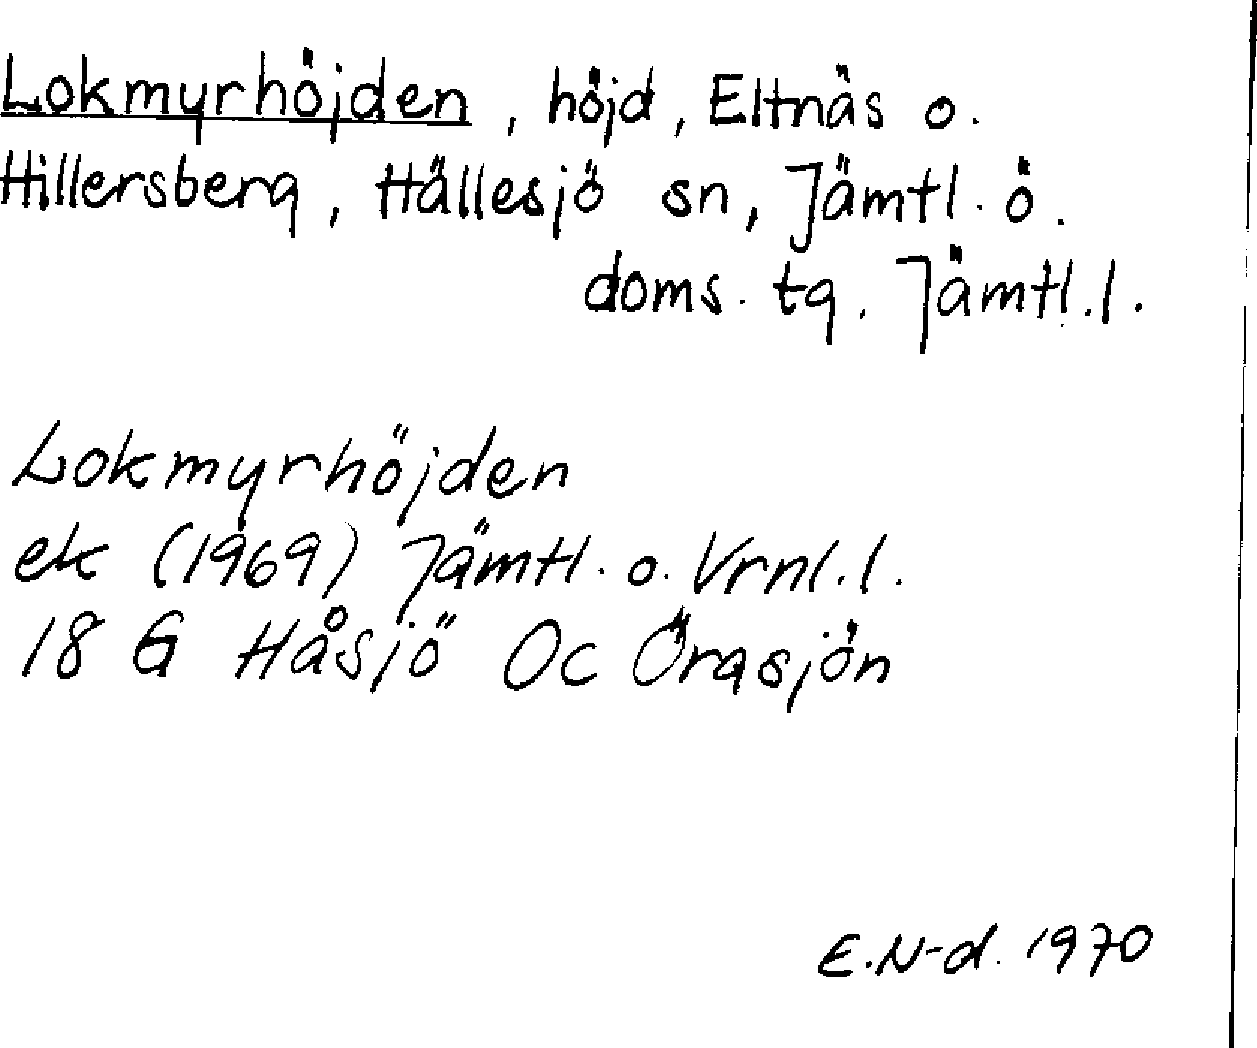 Lokmyrhöjden, höjd, Eltnäs o.
Hillersberg, Hällesjö sn, Jämtl. ö.
doms. tg. Jämtl. l.
Lokmyrhöjden
ek (1969) Jämtl. o. Vrnl. l.
18 G Håsjö Oc Örasjön
E.N-d. 1970